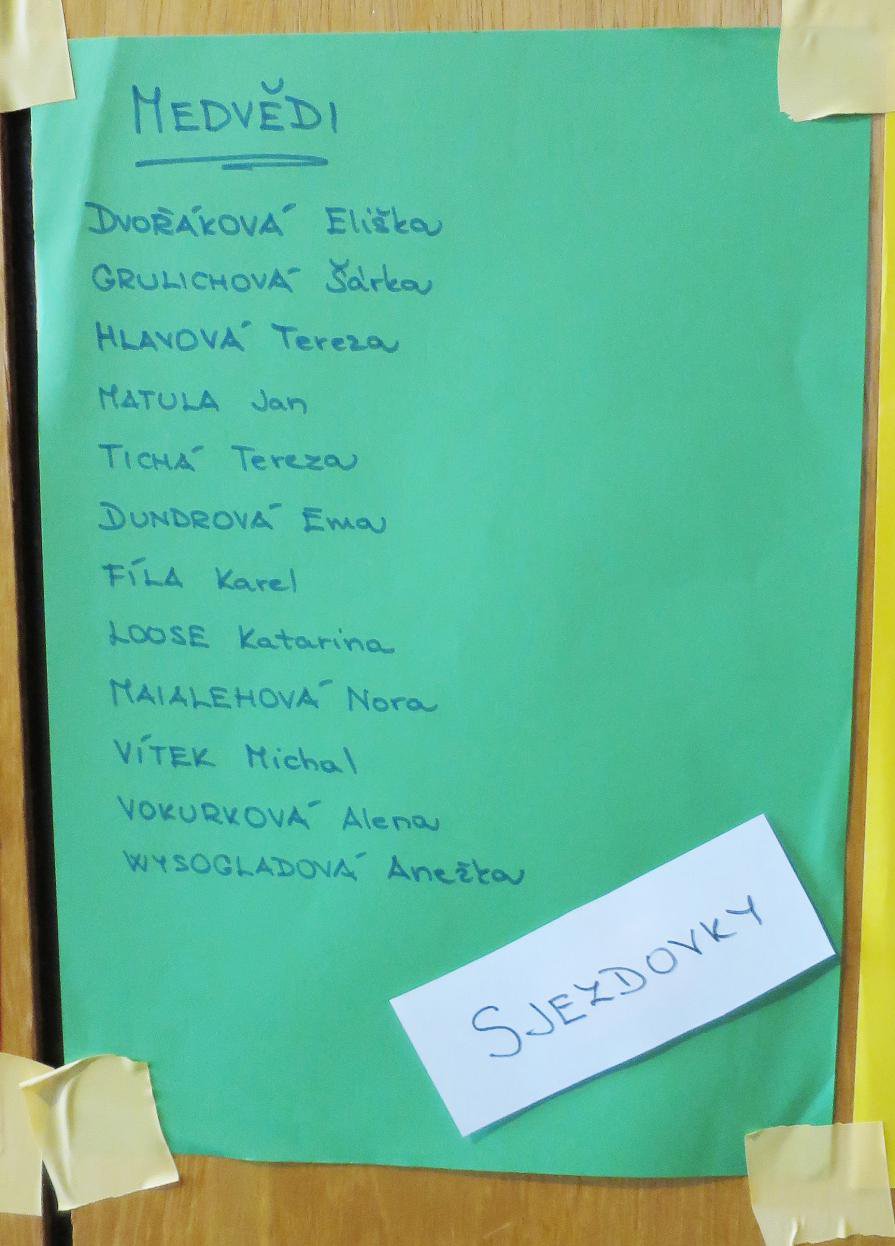 MEDVĚDI
DVOŘÁKOVÁ Eliška
GRULICHOVÁ Šárka
HLAVOVÁ Tereza
MATULA Jan
TICHÁ Tereza
DUNDROVÁ Ema
FÍLA Karel
LOOSE Katarina
MAIALEHOVÁ Nora
VÍTEK Michal
VOKURKOVÁ Alena
WYSOGLADOVÁ Anežka
SJEZDOVKY